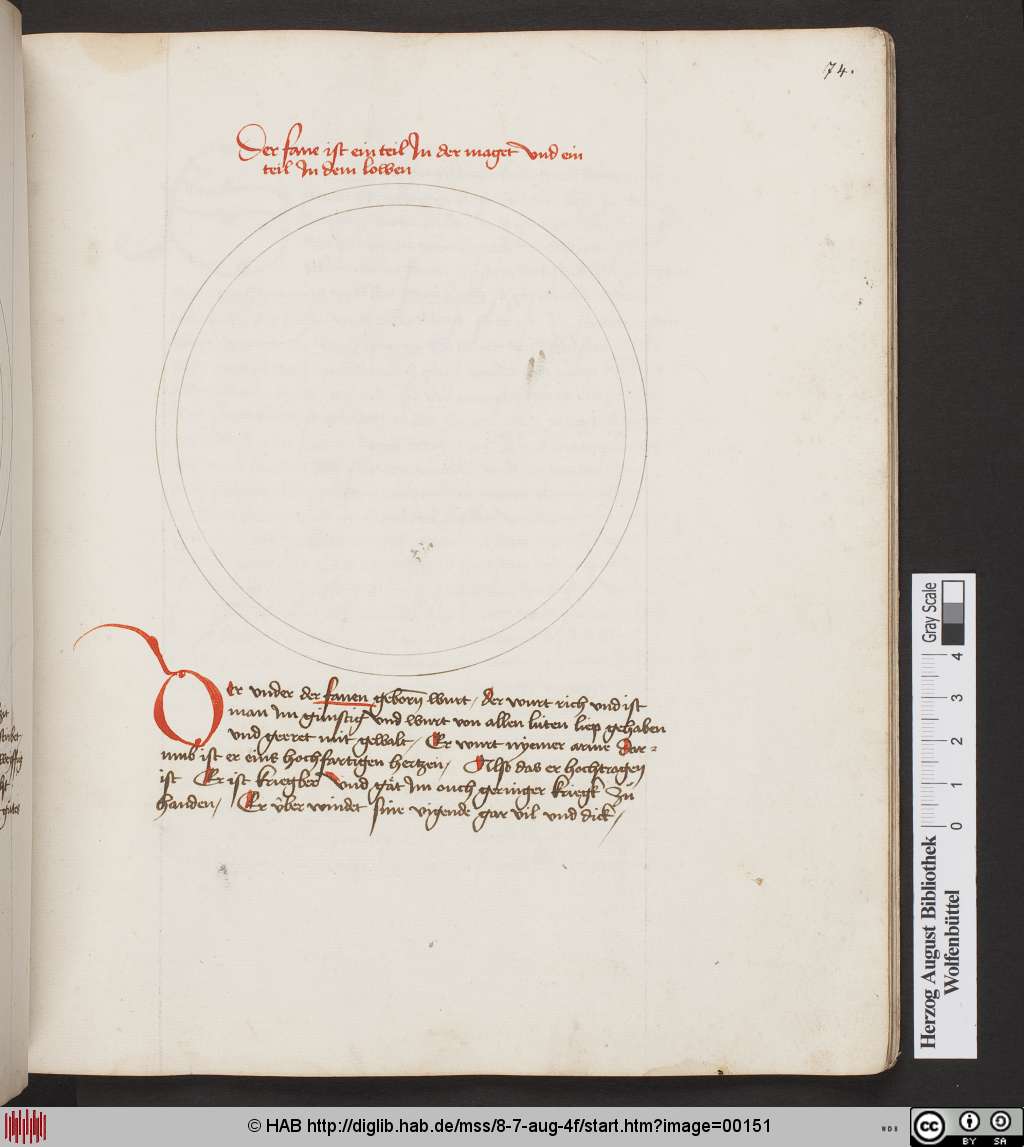 74.
Der fane ist ein teil In der maget und ein
teil In dem lowen
Der under der fanen geborn wurt / der wurt rich und ist
man im günstig und wurt von allen lüten liep gehaben
und geeret mit gewalt / Er wurt nyemer arme dar=
umb ist er eins hochfartigen hertzen / Also das er hochtragen
ist Er ist kriegber und gät im ouch geringer kriegk zü
handen / Er über windet sine vigende gar vil und dick /
Gray Scale
0 1 2 3 4
Herzog August Bibliothek
Wolfenbüttel
© HAB http://diglib.hab.de/mss/8-7-aug-4f/start.htm?image=00151
WDB
cc BY SA